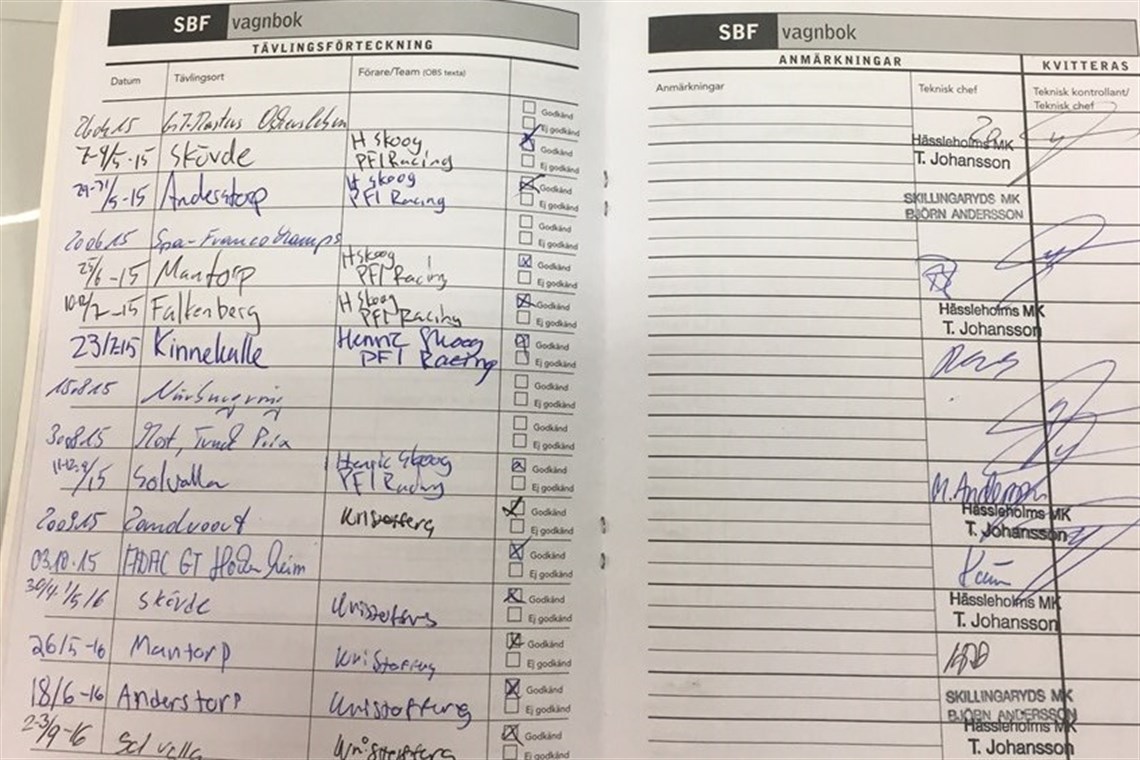 SBF vagnbok
TÄVLINGSFÖRTECKNING
Datum Tävlingsort Förare/Team (OBS texta)
Godkänd
Ej godkänd
7-9/5-15 Skövde H Skoog Godkänd
PFI Racing Ej godkänd
29-31/5-15 Anderstorp H Skoog Godkänd
PFI Racing Ej godkänd
200615 Spa-Francorchamps Godkänd
Ej godkänd
25/6-15 Mantorp H Skoog Godkänd
PFI Racing Ej godkänd
Falkenberg H Skoog Godkänd
PFI Racing Ej godkänd
23/7-15 Kinnekulle Henric Skoog Godkänd
PFI Racing Ej godkänd
150815 Nürburgring Godkänd
Ej godkänd
300815 Most, Godkänd
Ej godkänd
Solvalla Henric Skoog Godkänd
PFI Racing Ej godkänd
200915 Zandvoort Godkänd
Ej godkänd
03.10.15 ADAC GT Hockenheim Godkänd
Ej godkänd
Skövde Godkänd
Ej godkänd
26/5-16 Mantorp Godkänd
Ej godkänd
18/6-16 Anderstorp Godkänd
Ej godkänd
2-3/9-16 Solvalla Godkänd
Ej godkänd
SBF vagnbok
ANMÄRKNINGAR KVITTERAS
Anmärkningar Teknisk chef Teknisk kontrollant/
Teknisk chef
Hässleholms MK
T. Johansson
SKILLINGARYDS MK
BJÖRN ANDERSSON
Hässleholms MK
T. Johansson
M. Andersson
Hässleholms MK
T. Johansson
Hässleholms MK
T. Johansson
SKILLINGARYDS MK
BJÖRN ANDERSSON
Hässleholms MK
T. Johansson